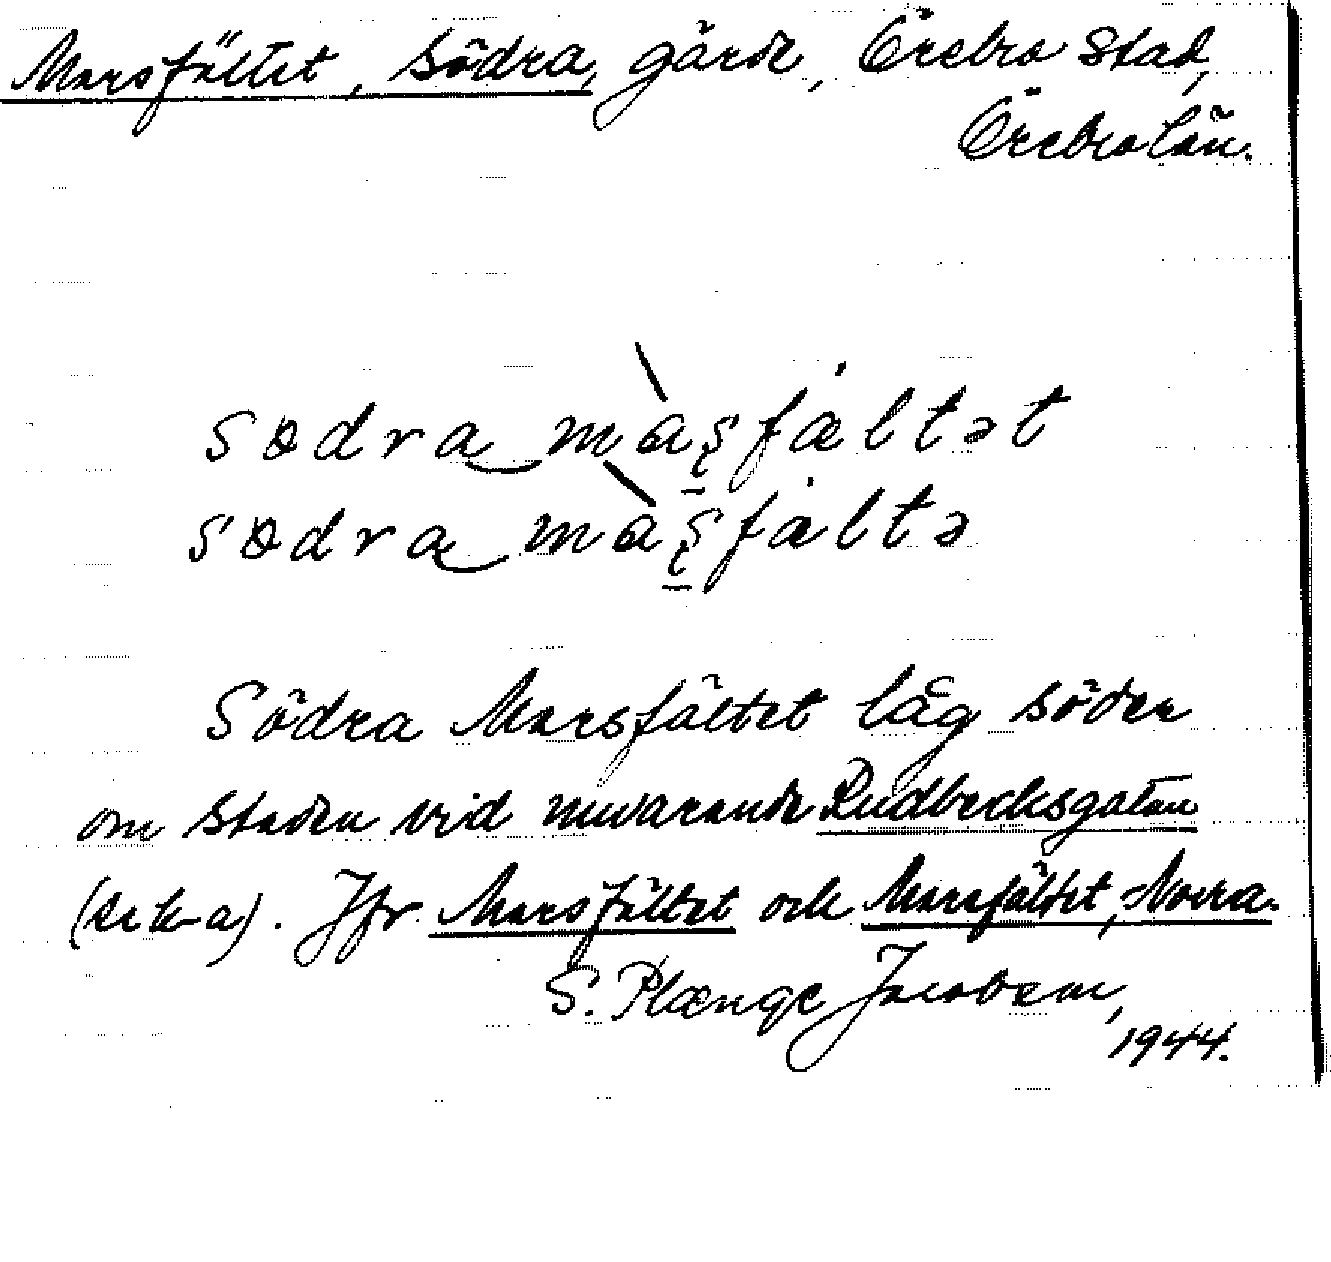 Marsfältet, Södra, gärde, Örebro stad,
Örebro län.
södra màṣfæ̇ltət
södra màṣfa̍ltə
Södra Marsfältet låg söder
om staden vid nuvarande Rudbecksgatan
(se k-a). Jfr Marsfältet och Marsfältet, Norra.
S. Plænge Jacobson,
1944.